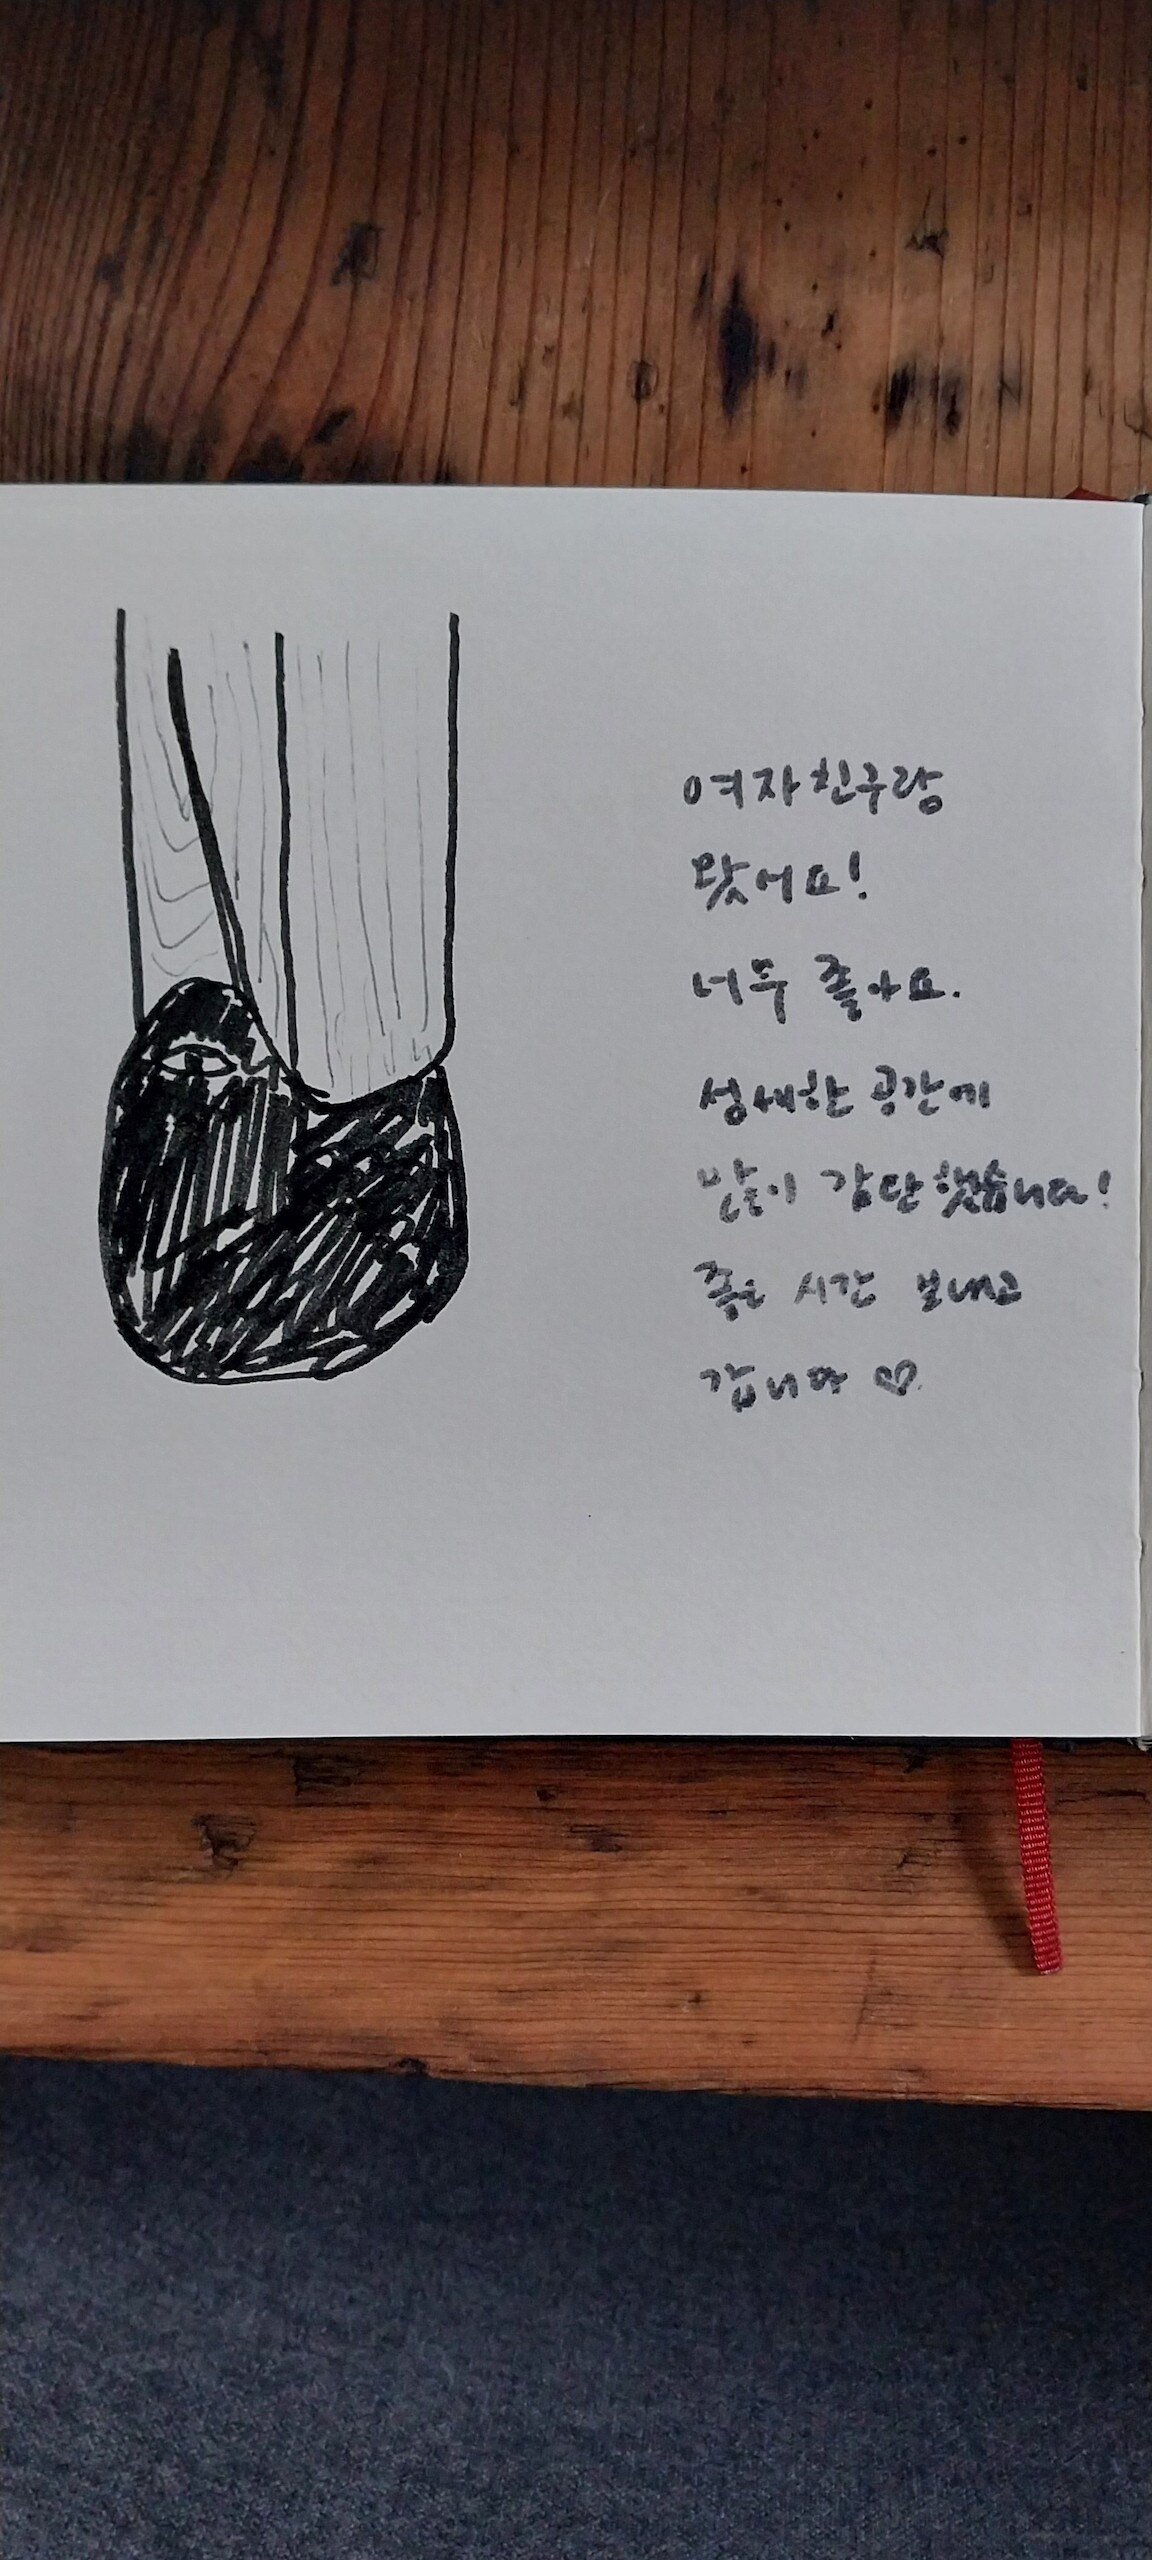 여자친구랑
왔어요!
너무 좋아요.
섬세한 공간에
많이 감탄했습니다!
좋은 시간 보내고
갑니다 ♡